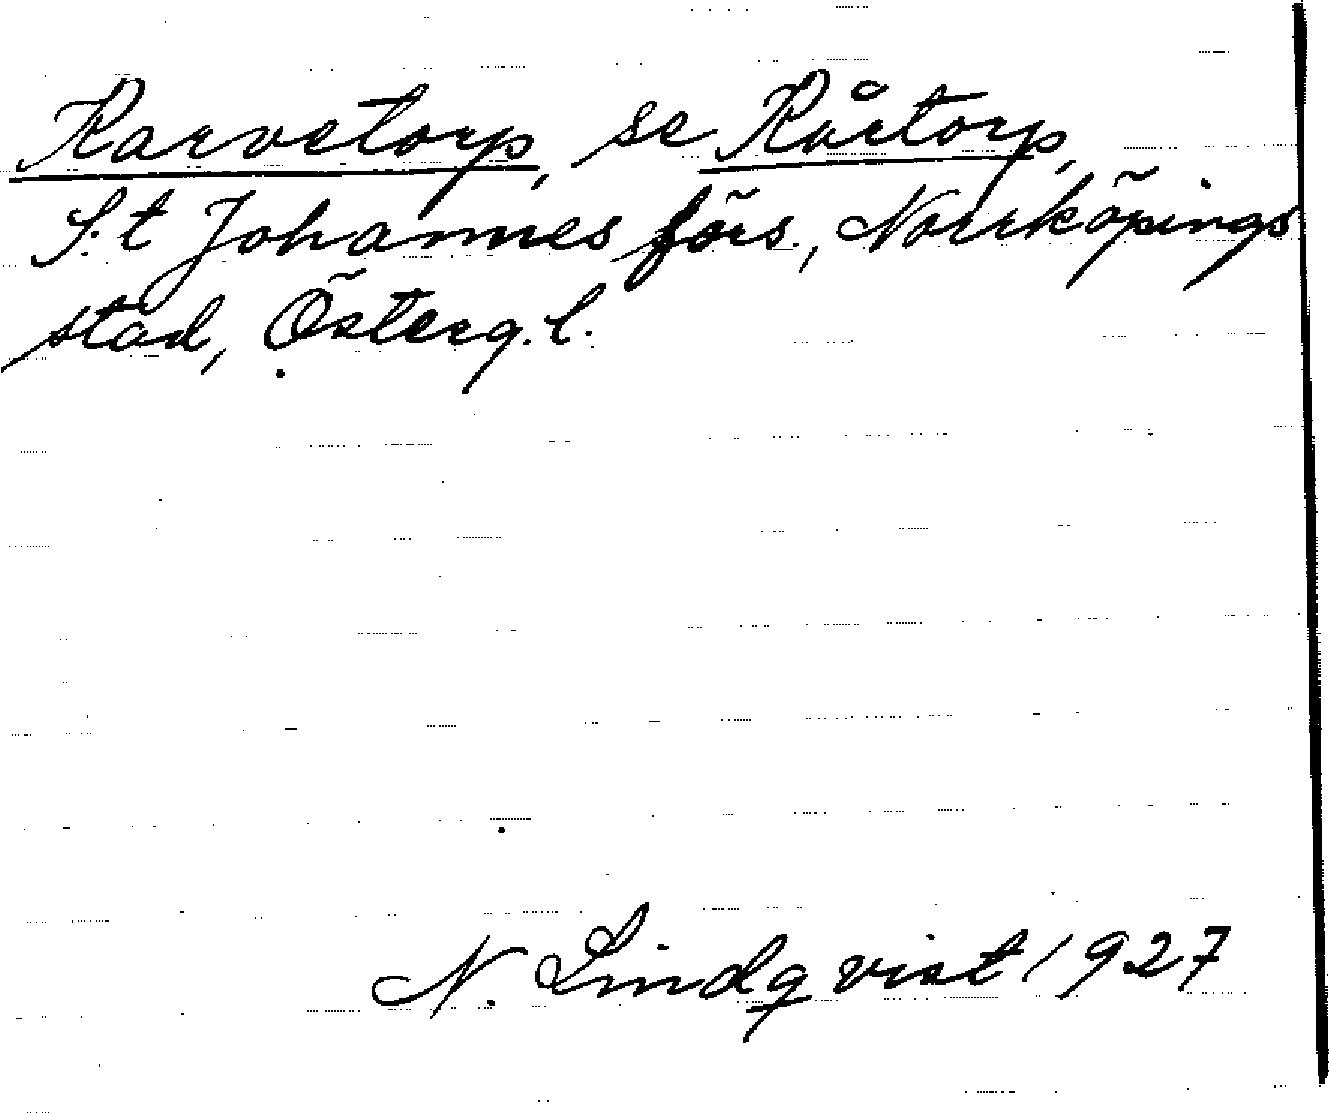 Karvetorp, se Kårtorp,
S:t Johannes förs., Norrköpings
stad, Österg. l.
N. Lindqvist 1927